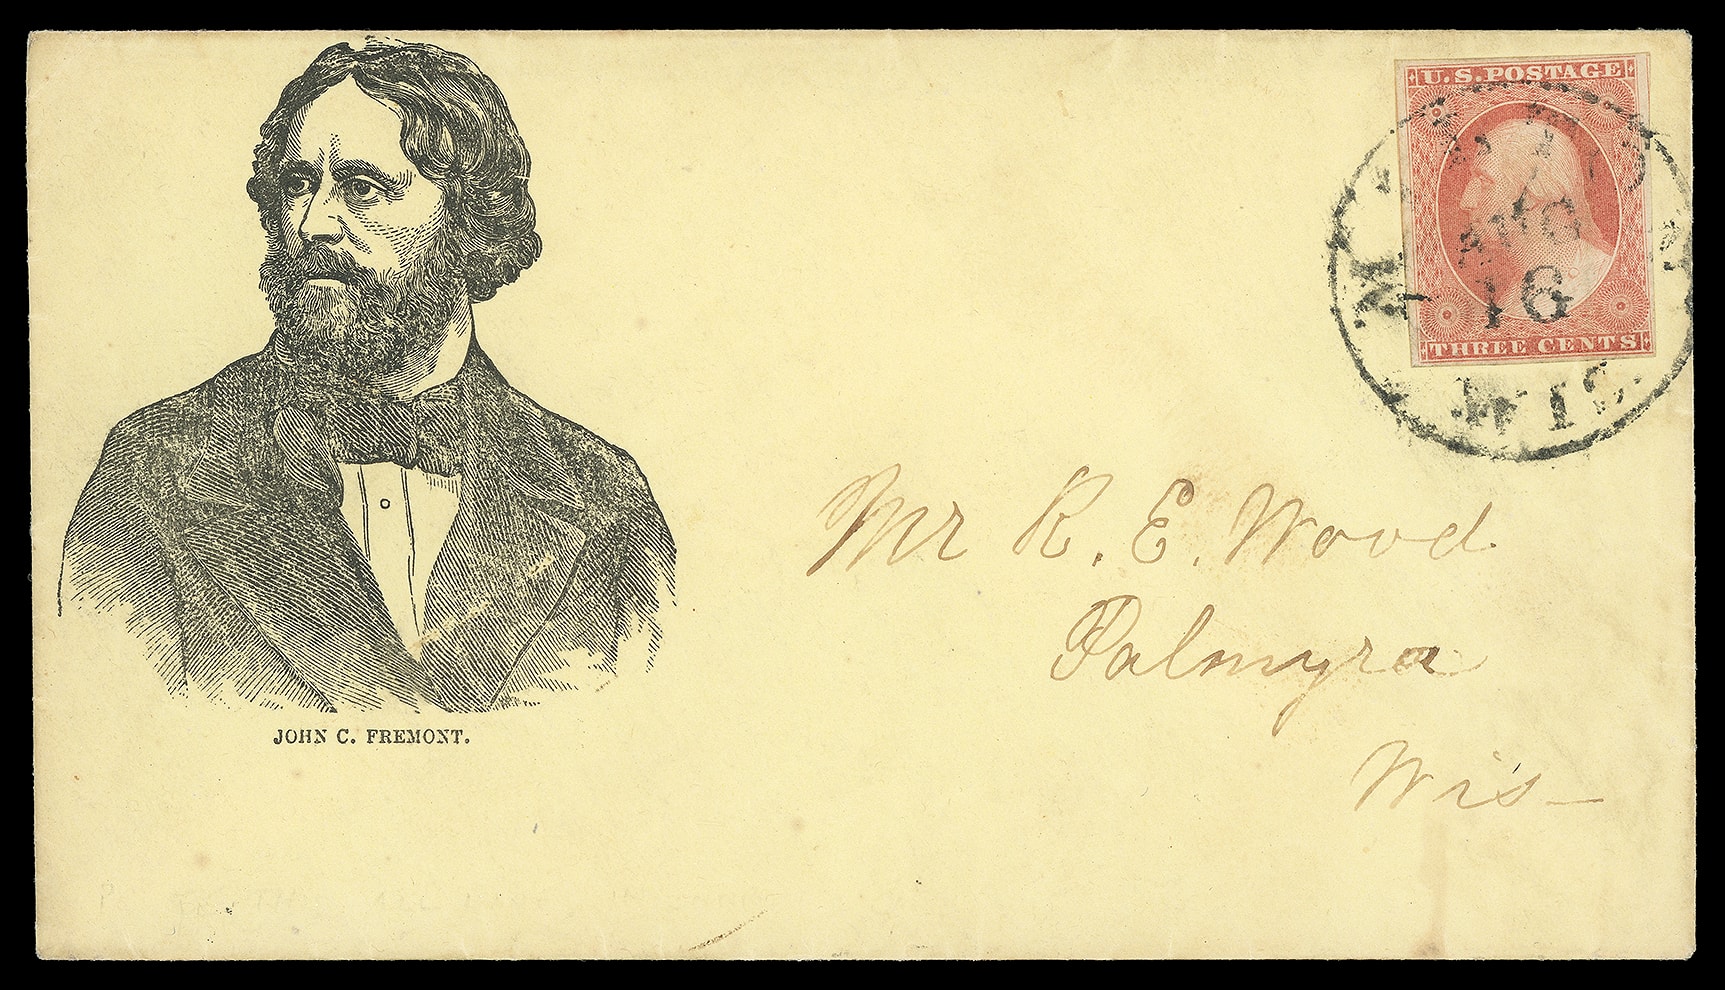 U.S. POSTAGE
AUG
16
THREE CENTS
WIS.
Mr R. E. Wood
Palmyra
Wis
JOHN C. FREMONT.